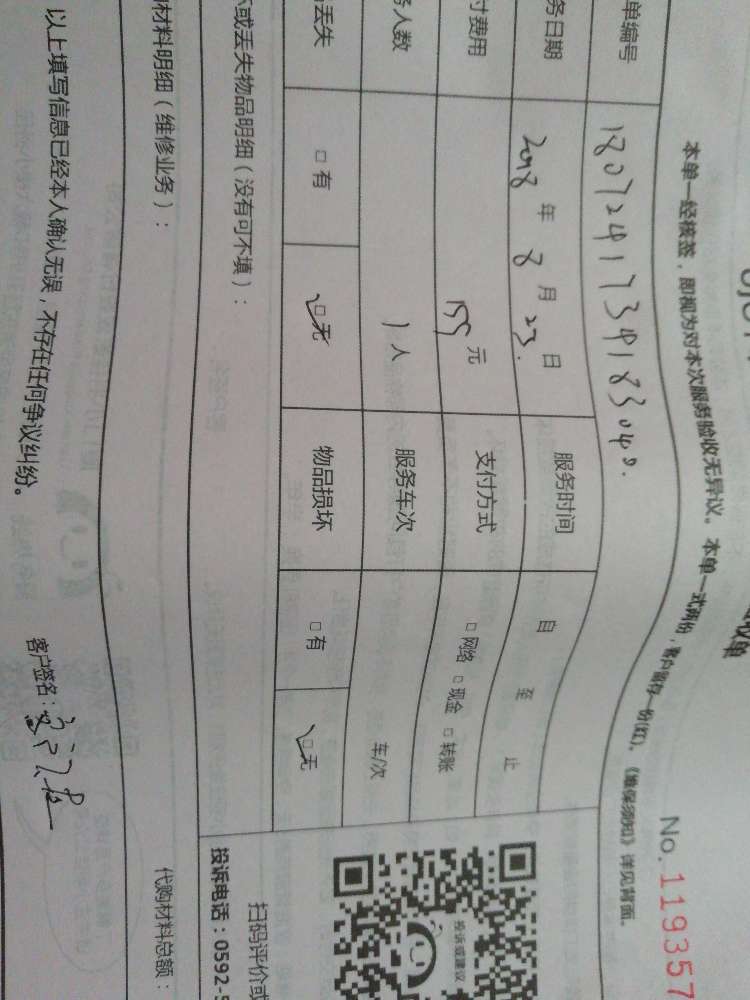 收单
No.119357
本单一经核签，即视为对本次服务验收无异议。本单一式两份，客户留存一份(红)。《维保须知》详见背面。
单编号 1807241734183040.
务日期 2018年8月23.日 服务时间 自 至 止
付费用 155元 支付方式 □网络 □现金 □转账
务人数 1人 服务车次 车/次
丢失 □有 □无 物品损坏 □有 □无
坏或丢失物品明细（没有可不填）：
投诉或建议
扫码评价或
投诉电话：0592-5
材料明细（维修业务）： 代购材料总额：
以上填写信息已经本人确认无误，不存在任何争议纠纷。 客户签名：